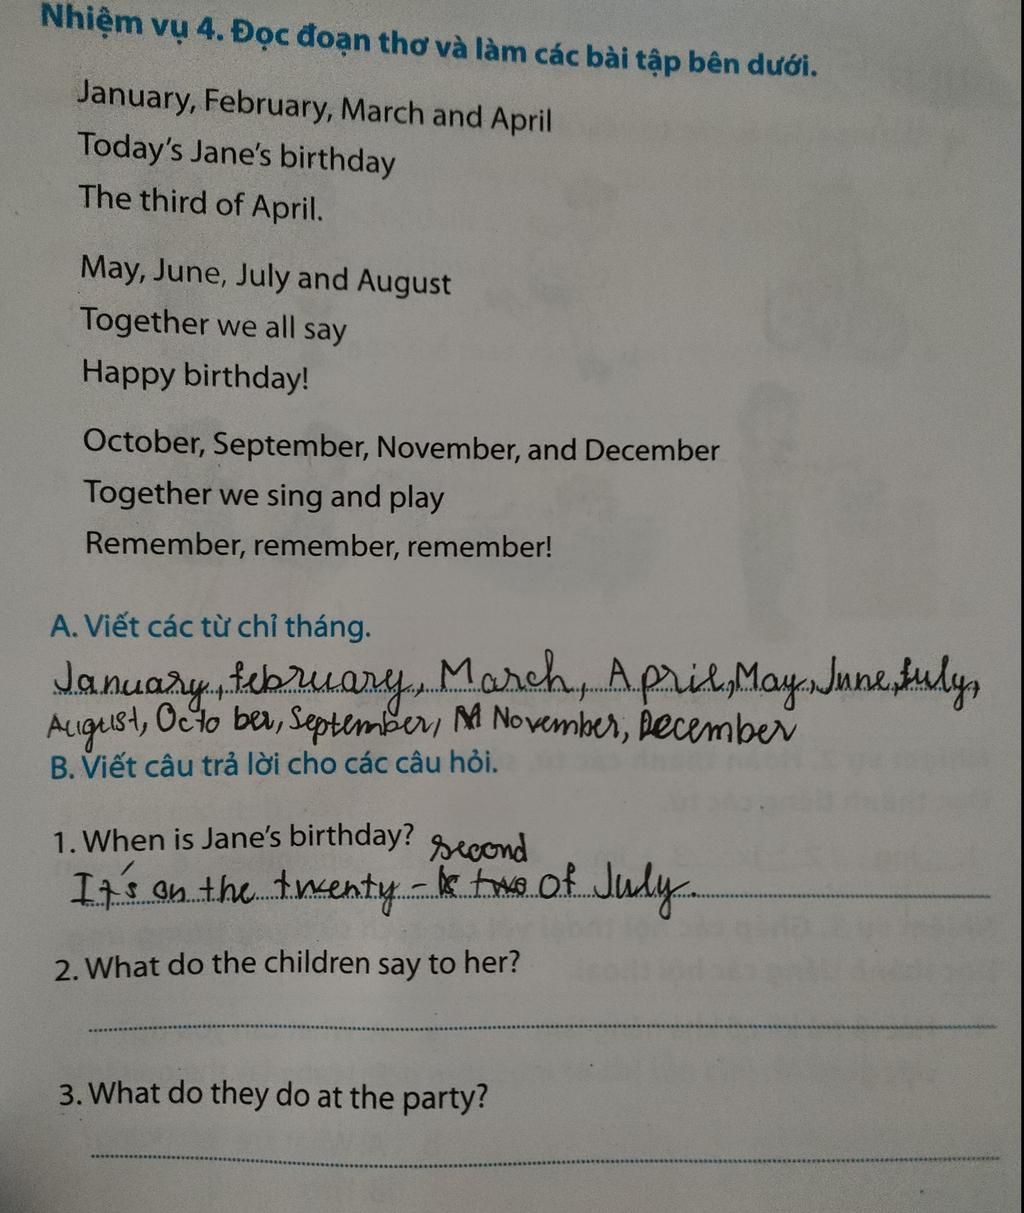 Nhiệm vụ 4. Đọc đoạn thơ và làm các bài tập bên dưới.
January, February, March and April
Today's Jane's birthday
The third of April.
May, June, July and August
Together we all say
Happy birthday!
October, September, November, and December
Together we sing and play
Remember, remember, remember!
A. Viết các từ chỉ tháng.
January, february, March, April, May, June, July,
August, Octo ber, September, M November, December
B. Viết câu trả lời cho các câu hỏi.
1. When is Jane's birthday?
second
It's on the twenty - two of July.
2. What do the children say to her?
3. What do they do at the party?